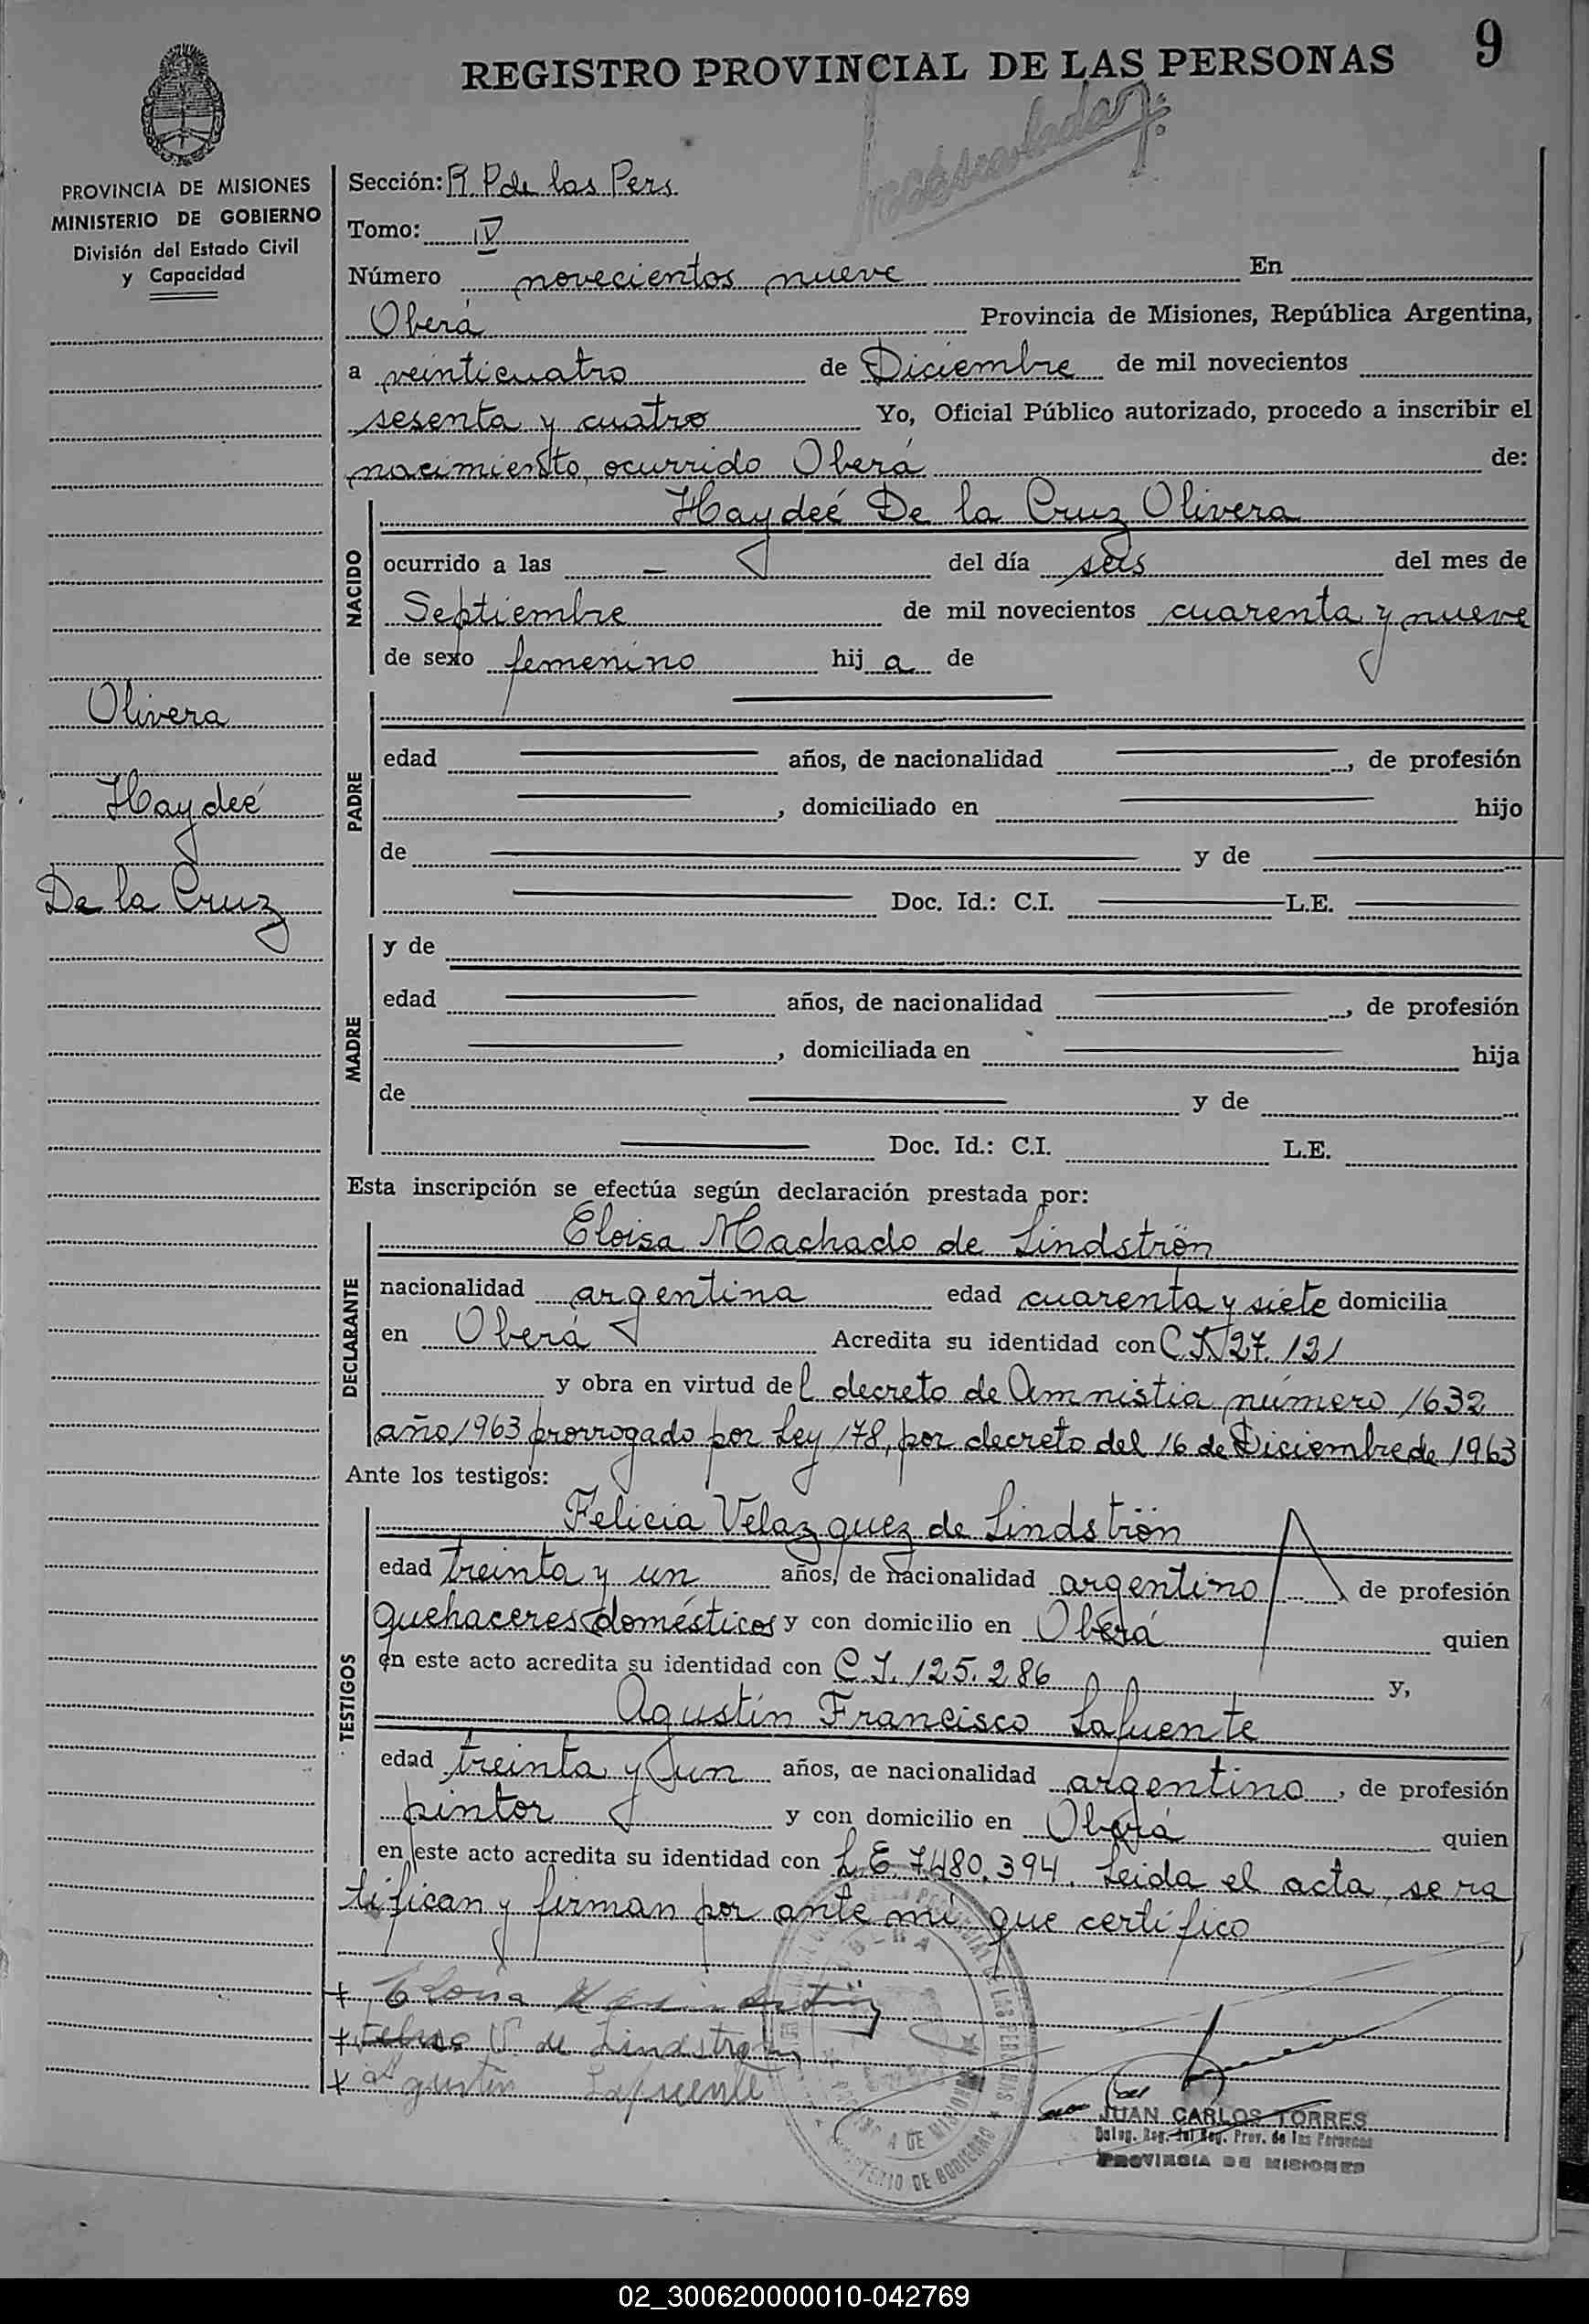 REGISTRO PROVINCIAL DE LAS PERSONAS 9
PROVINCIA DE MISIONES
MINISTERIO DE GOBIERNO
División del Estado Civil
y Capacidad
Sección: R. P de las Pers.
Tomo: IV
Número novecientos nueve En
Oberá Provincia de Misiones, República Argentina,
a veinticuatro de Diciembre de mil novecientos
sesenta y cuatro Yo, Oficial Público autorizado, procedo a inscribir el
nacimiento, ocurrido Oberá de:
NACIDO
Haydeé De la Cruz Olivera
ocurrido a las — del día seis del mes de
Septiembre de mil novecientos cuarenta y nueve
de sexo femenino hij a de
Olivera
Haydeé
De la Cruz
PADRE
edad años, de nacionalidad , de profesión
, domiciliado en hijo
de y de
Doc. Id.: C.I. L.E.
MADRE
y de
edad años, de nacionalidad , de profesión
, domiciliada en hija
de y de
Doc. Id.: C.I. L.E.
Esta inscripción se efectúa según declaración prestada por:
DECLARANTE
Eloisa Machado de Lindströn
nacionalidad argentina edad cuarenta y siete domicilia
en Oberá Acredita su identidad con 27.121
y obra en virtud del decreto de Amnistia número 1632
año 1963 prorrogado por Ley 178, por decreto del 16 de Diciembre de 1963
Ante los testigos:
TESTIGOS
Felicia Velazquez de Lindströn
edad treinta y un años, de nacionalidad argentino de profesión
quehaceres domésticos y con domicilio en Oberá quien
en este acto acredita su identidad con C.I. 125.286 y,
Agustín Francisco Lafuente
edad treinta y un años, de nacionalidad argentino, de profesión
pintor y con domicilio en Oberá quien
en este acto acredita su identidad con L.E. 7.480.394. Leida el acta, se ra
tifican y firman por ante mí que certifico
Eloisa
V de Lindstron
agustin Lafuente
JUAN CARLOS TORRES
PROVINCIA DE MISIONES
02_300620000010-042769